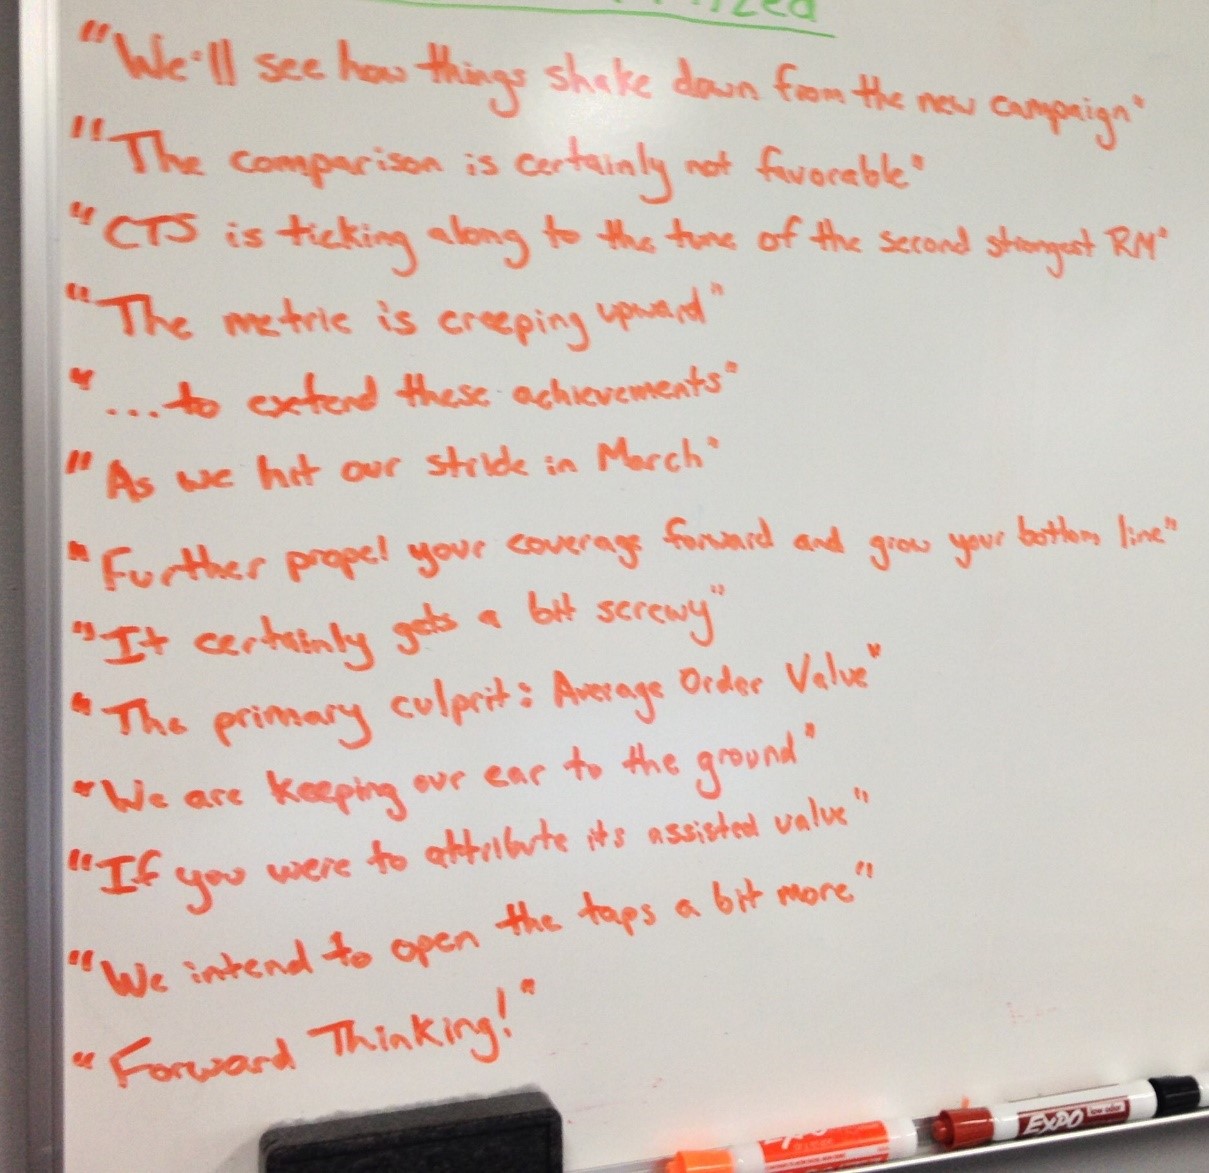 "We'll see how things shake down from the new campaign"
"The comparison is certainly not favorable"
"CTS is ticking along to the tune of the second strongest RM"
"The metric is creeping upward"
"...to extend these achievements"
"As we hit our stride in March"
"Further propel your coverage forward and grow your bottom line"
"It certainly gets a bit screwy"
"The primary culprit: Average Order Value"
"We are keeping our ear to the ground"
"If you were to attribute its assisted value"
"We intend to open the taps a bit more"
"Forward Thinking!"
EXPO low odor